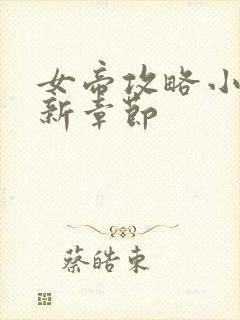 女帝攻略小
新章节
蔡皓東